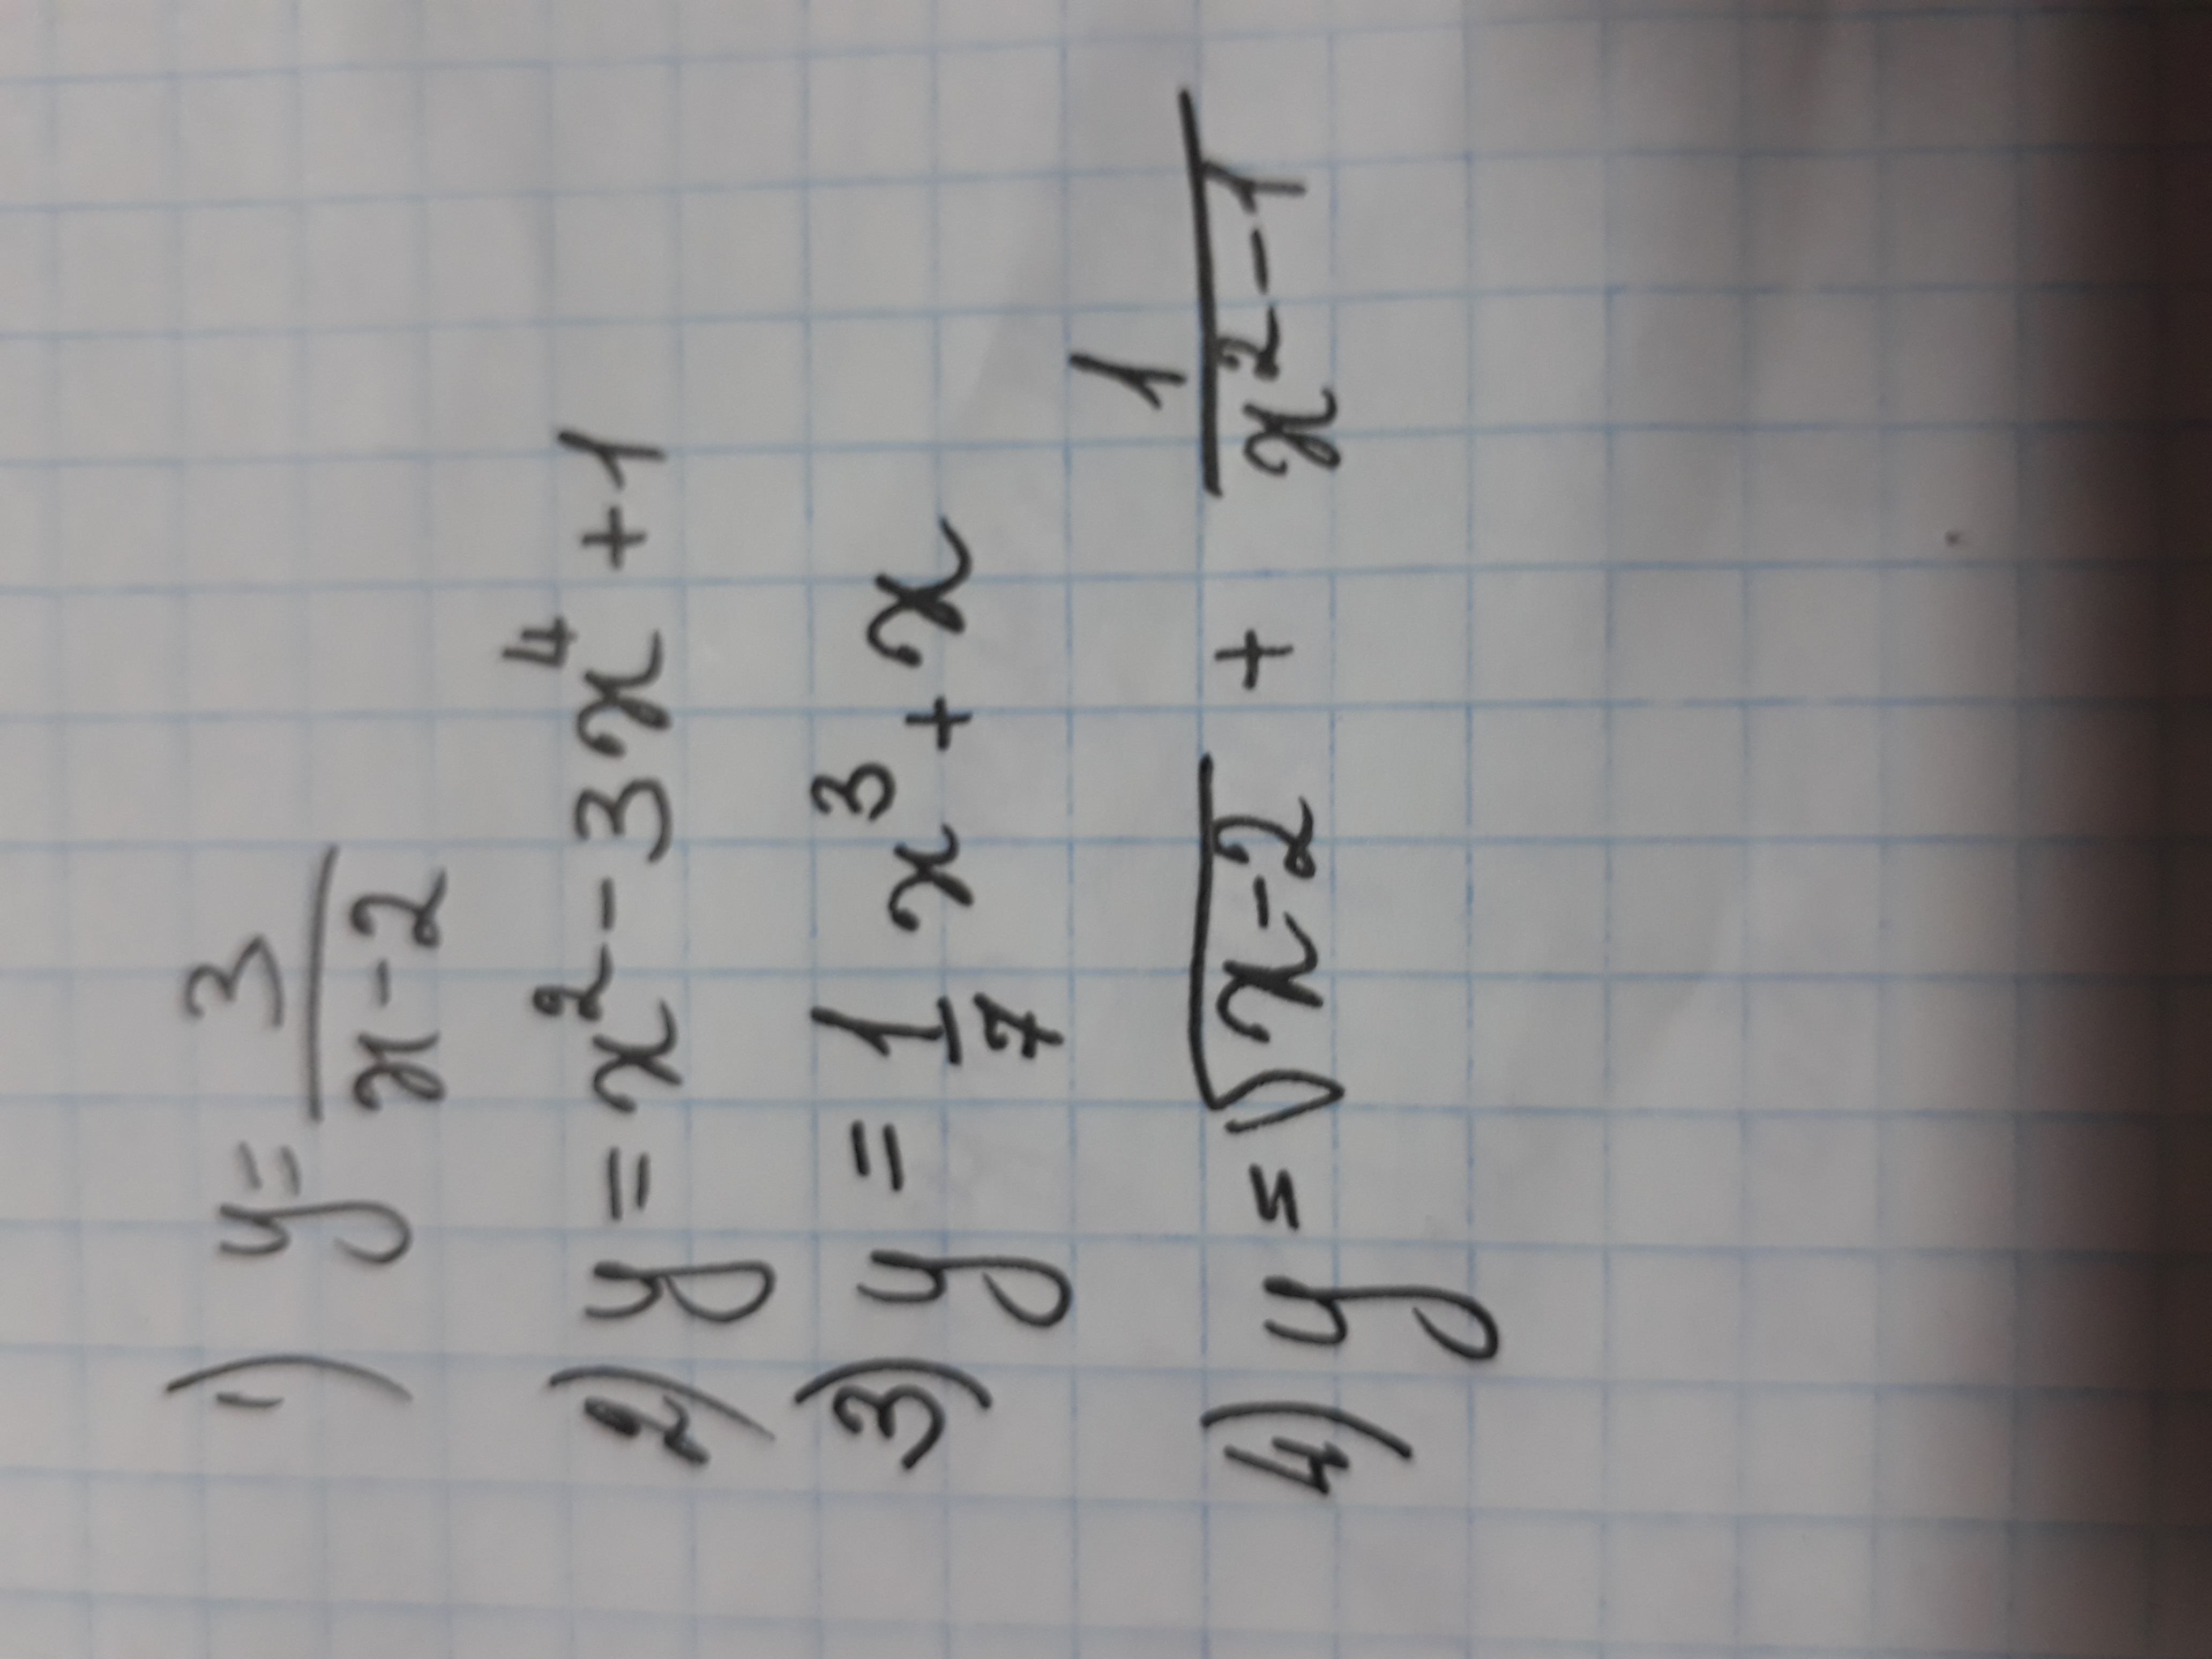 1) y = 3/(x-2)
2) y = x² - 3x⁴ + 1
3) y = 1/7 x³ + x
4) y = √(x-2) + 1/(x²-1)